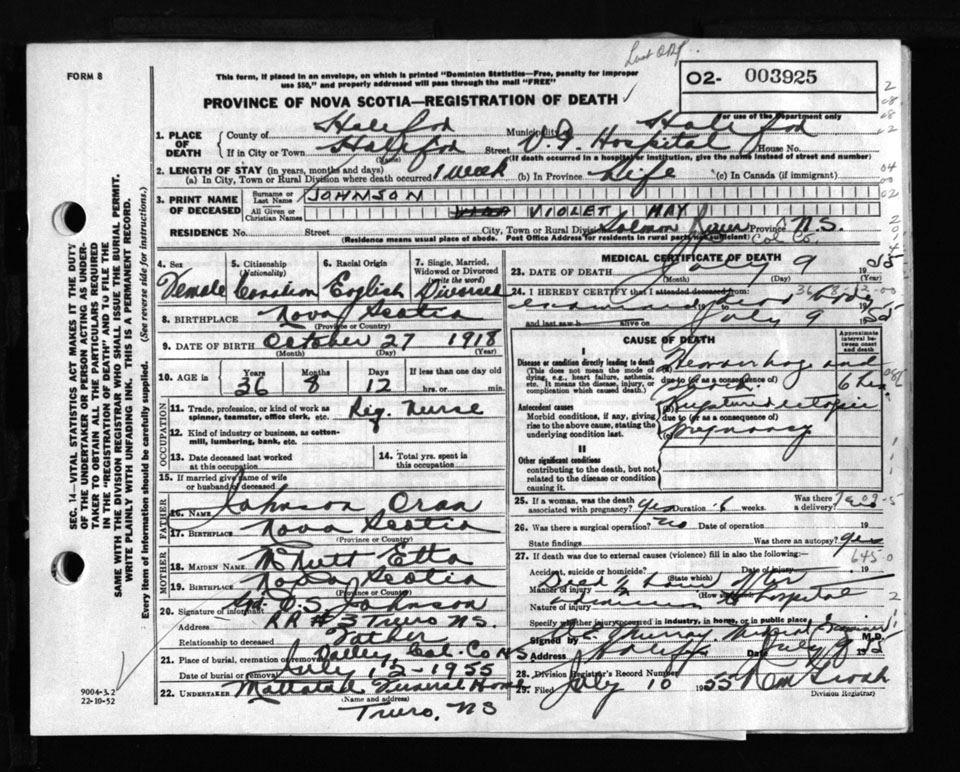 FORM 8
This form, if placed in an envelope, on which is printed "Dominion Statistics—Free, penalty for improper
use $50," and properly addressed will pass through the mail "FREE"
O2- 003925
For use of the Department only
PROVINCE OF NOVA SCOTIA—REGISTRATION OF DEATH
1. PLACE OF DEATH
County of Halifax Municipality Halifax
If in City or Town Halifax Street V.G. Hospital House No.
(Name) (If death occurred in a hospital or institution, give the name instead of street and number)
2. LENGTH OF STAY (in years, months and days)
(a) In City, Town or Rural Division where death occurred 1 week (b) In Province Life (c) In Canada (if immigrant)
3. PRINT NAME OF DECEASED
Surname or Last Name JOHNSON
All Given or Christian Names VIOLET MAY
RESIDENCE No. Street City, Town or Rural Division Salmon River Province N.S.
(Residence means usual place of abode. Post Office Address for residents in rural parts not sufficient) Col. Co
4. Sex Female
5. Citizenship (Nationality) Canadian
6. Racial Origin English
7. Single, Married, Widowed or Divorced (write the word) Divorced
8. BIRTHPLACE Nova Scotia
(Province or Country)
9. DATE OF BIRTH October 27 1918
(Month) (Day) (Year)
10. AGE in Years 36 Months 8 Days 12 If less than one day old
hrs. or min.
OCCUPATION
11. Trade, profession, or kind of work as spinner, teamster, office clerk, etc. Reg. Nurse
12. Kind of industry or business, as cotton-mill, lumbering, bank, etc.
13. Date deceased last worked at this occupation
14. Total yrs. spent in this occupation
15. If married give name of wife or husband of deceased
FATHER
16. Name Johnson Oran
17. Birthplace Nova Scotia
(Province or Country)
MOTHER
18. MAIDEN NAME McNutt Etta
19. BIRTHPLACE Nova Scotia
(Province or Country)
20. Signature of informant Sgd. O.S. Johnson
Address RR #3 Truro NS.
Relationship to deceased Father
21. Place of burial, cremation or removal Valley Col. Co NS
Date of burial or removal July 12 - 1955
22. UNDERTAKER Mattatall Funeral Home
(Name and address)
Truro, NS
MEDICAL CERTIFICATE OF DEATH
23. DATE OF DEATH July 9 1955
(Month) (Day)
24. I HEREBY CERTIFY that I attended deceased from
examined dead body
and last saw h alive on July 9 1955
CAUSE OF DEATH
Approximate interval between onset and death
I
Disease or condition directly leading to death
(This does not mean the mode of dying, e.g., heart failure, asthenia, etc. It means the disease, injury, or complication which caused death.)
(a) Hemorrhage and
due to (or as a consequence of) 6 hrs
Antecedent causes
Morbid conditions, if any, giving rise to the above cause, stating the underlying condition last.
(b) Ruptured ectopic
due to (or as a consequence of)
(c) pregnancy
II
Other significant conditions
contributing to the death, but not related to the disease or condition causing it.
25. If a woman, was the death associated with pregnancy? yes 6 weeks. Was there a delivery? no
26. Was there a surgical operation? no Date of operation 19
State findings Was there an autopsy? yes
27. If death was due to external causes (violence) fill in also the following:—
Accident, suicide or homicide? Date of injury 19
(State which)
Manner of injury Died ½ hour after
(How sustained)
Nature of injury hospital
Specify whether injury occurred in industry, in home, or in public place
Signed by Murray Medical Examiner M.D.
Address Halifax Date July 9
28. Division Registrar's Record Number
29. Filed July 10 1955
Division Registrar
SEC. 14—VITAL STATISTICS ACT MAKES IT THE DUTY
OF THE UNDERTAKER OR PERSON ACTING AS UNDER-
TAKER TO OBTAIN ALL THE PARTICULARS REQUIRED
IN THE "REGISTRATION OF DEATH" AND TO FILE THE
SAME WITH THE DIVISION REGISTRAR WHO SHALL ISSUE THE BURIAL PERMIT.
WRITE PLAINLY WITH UNFADING INK. THIS IS A PERMANENT RECORD.
Every item of information should be carefully supplied. (See reverse side for instructions.)
9004-3.2
22-10-52